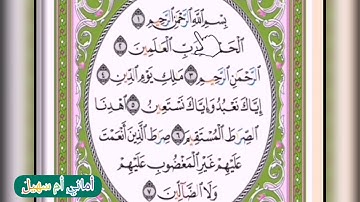 بِسْمِ ٱللَّهِ ٱلرَّحْمَٰنِ ٱلرَّحِيمِ ١
ٱلْحَمْدُ لِلَّهِ رَبِّ ٱلْعَٰلَمِينَ ٢
ٱلرَّحْمَٰنِ ٱلرَّحِيمِ ٣ مَٰلِكِ يَوْمِ ٱلدِّينِ ٤
إِيَّاكَ نَعْبُدُ وَإِيَّاكَ نَسْتَعِينُ ٥ ٱهْدِنَا
ٱلصِّرَٰطَ ٱلْمُسْتَقِيمَ ٦ صِرَٰطَ ٱلَّذِينَ أَنْعَمْتَ
عَلَيْهِمْ غَيْرِ ٱلْمَغْضُوبِ عَلَيْهِمْ
وَلَا ٱلضَّآلِّينَ ٧
أماني أم سهيل